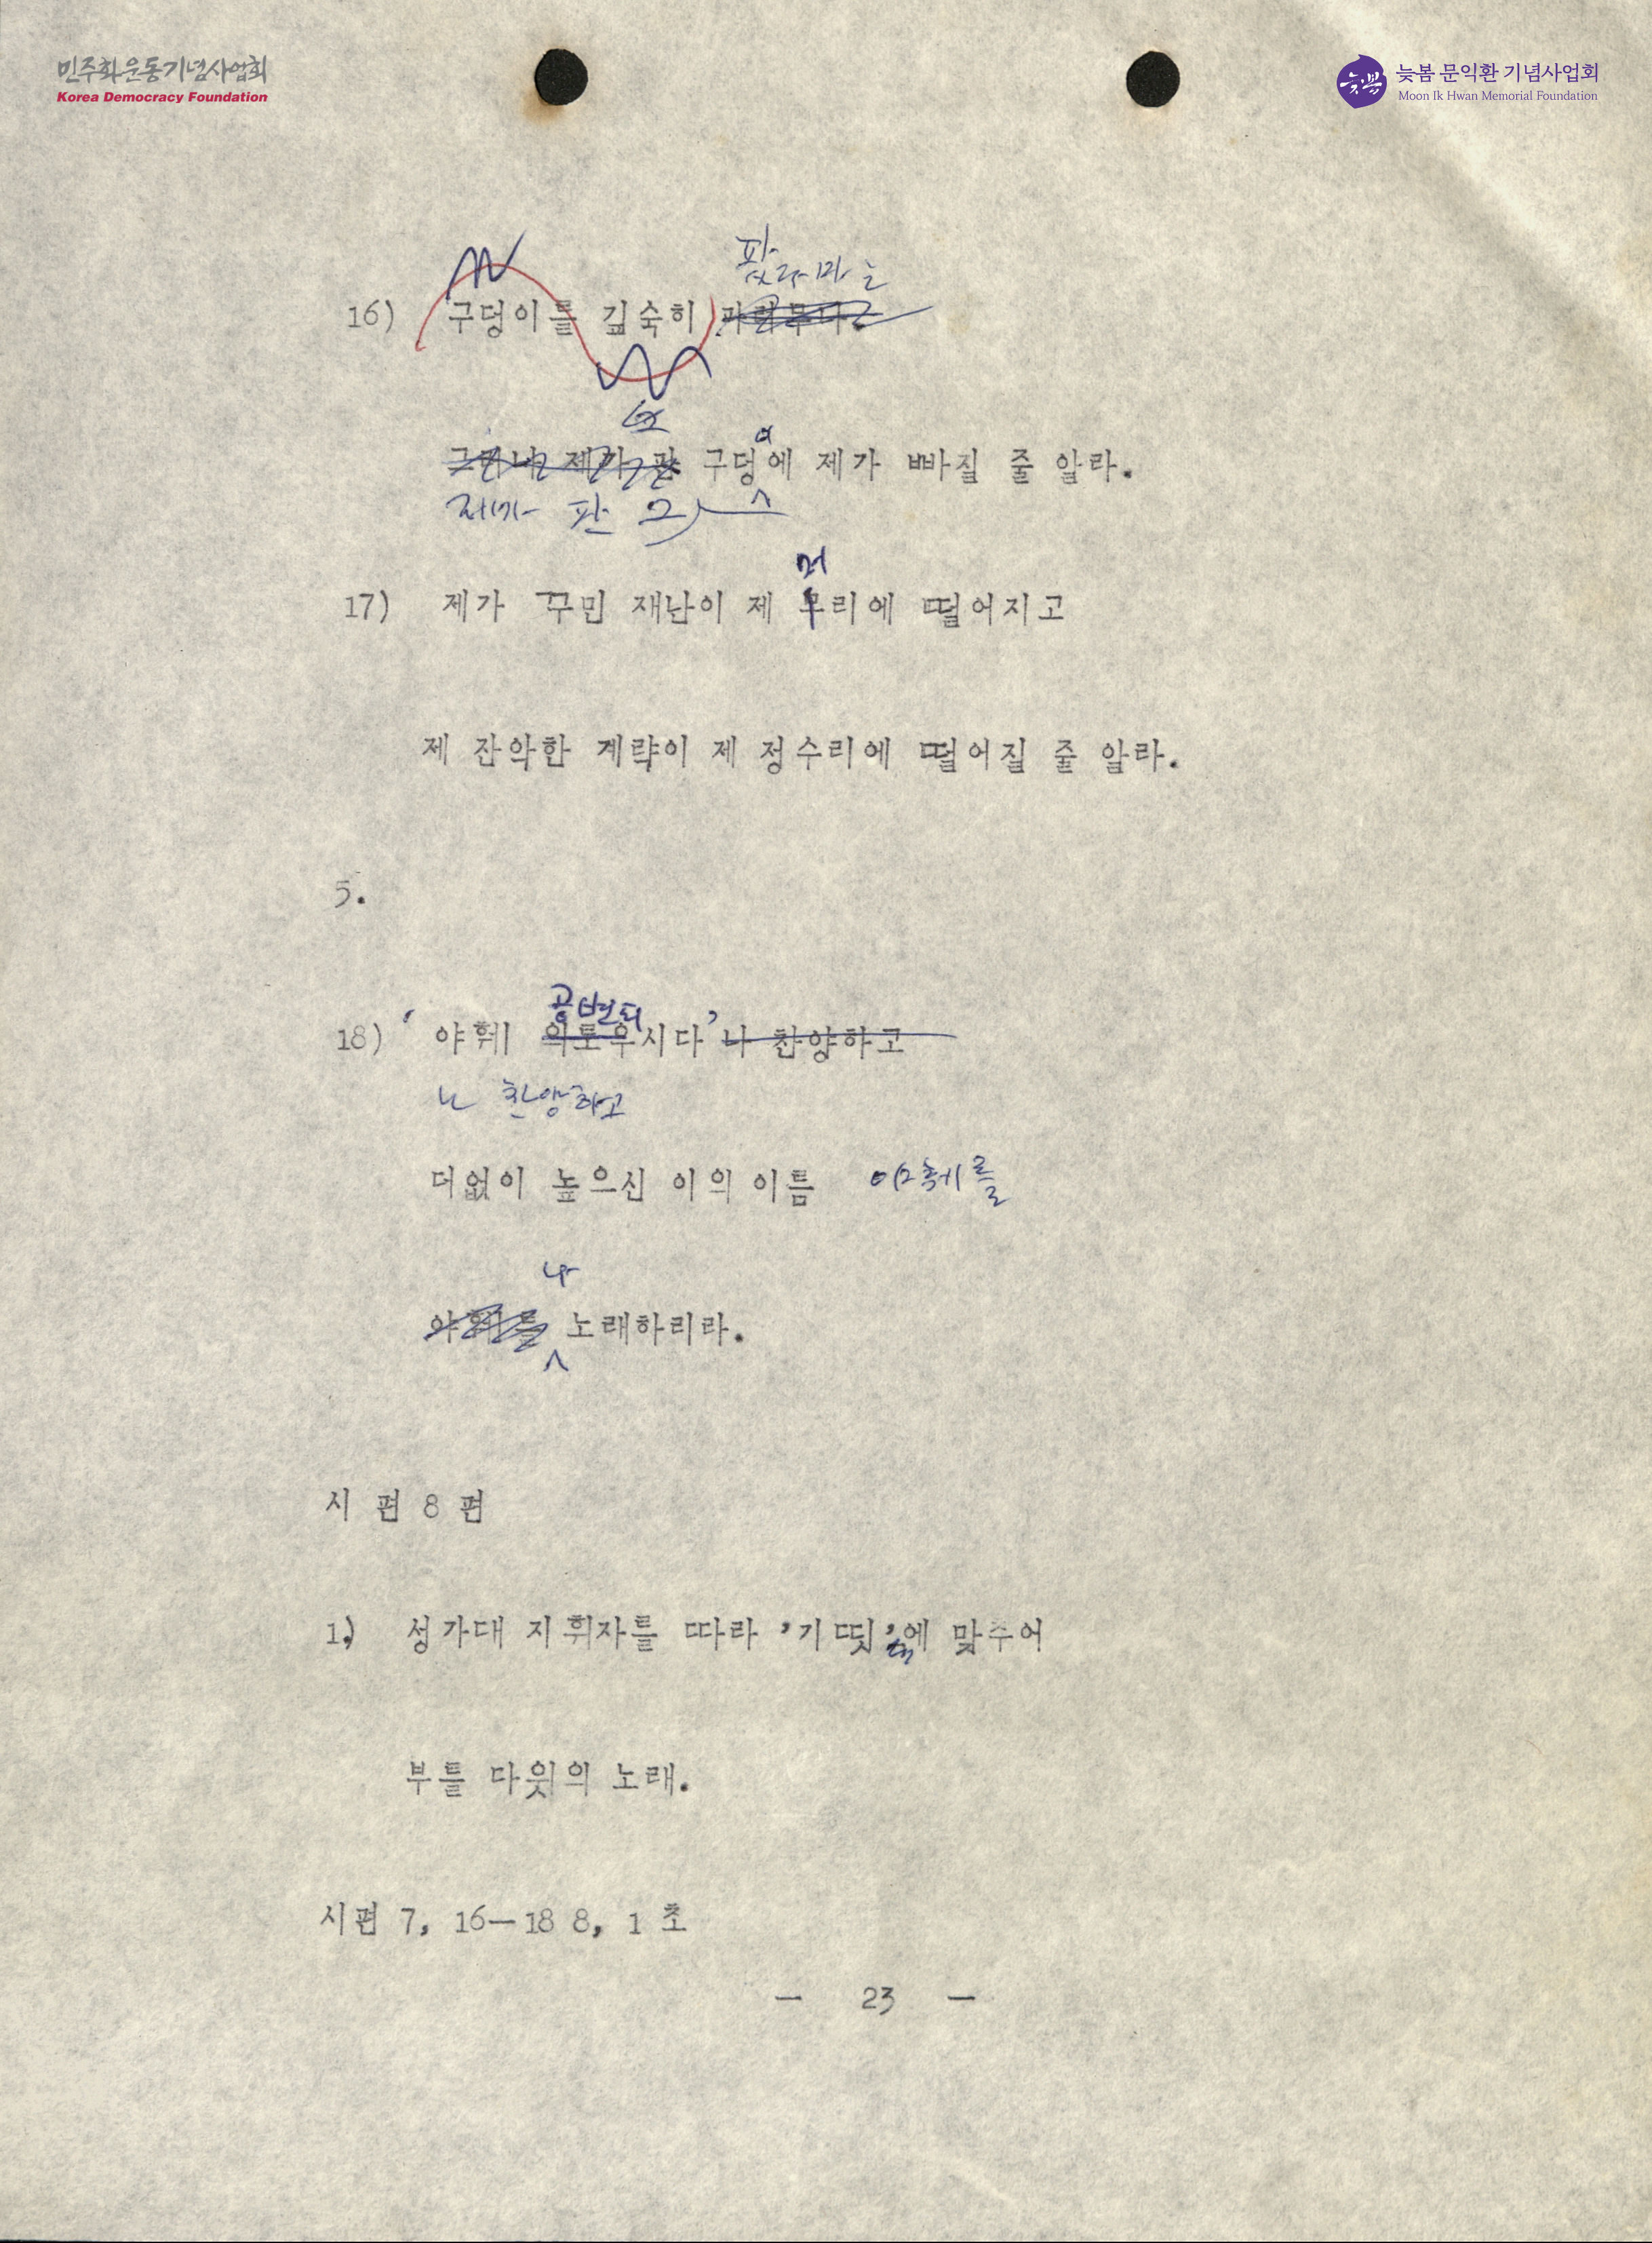 민주화운동기념사업회
Korea Democracy Foundation
늦봄 문익환 기념사업회
Moon Ik Hwan Memorial Foundation
팠지마는
16) 구덩이를 깊숙히
구덩이에 제가 빠질 줄 알라.
제가 판 그
머
17) 제가 꾸민 재난이 제 무리에 떨어지고
제 잔악한 계략이 제 정수리에 떨어질 줄 알라.
5.
공변되
18) ‘야훼 의로우시다’ 나 찬양하고
나 찬양하고
더없이 높으신 이의 이름 야훼를
나
야훼를 노래하리라.
시 편 8 편
1) 성가대 지휘자를 따라 '기띳'에 맞추어
부를 다윗의 노래.
시편 7, 16—18 8, 1 초
— 23 —